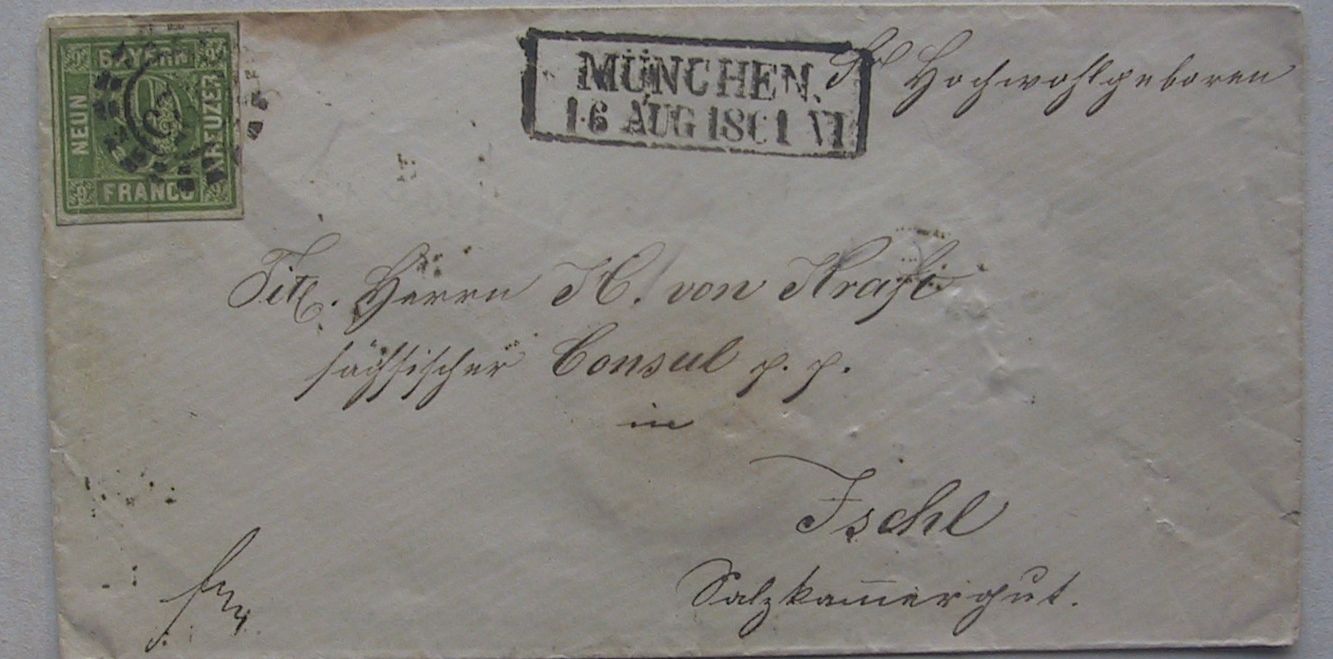 BAYERN
NEUN
KREUZER
FRANCO
MÜNCHEN.
16 AUG 1861 VI
Hochwohlgeboren
Tit. Herrn H. von Kraft
sächsischer Consul p. p.
in
Ischl
Salzkam̅ergut.